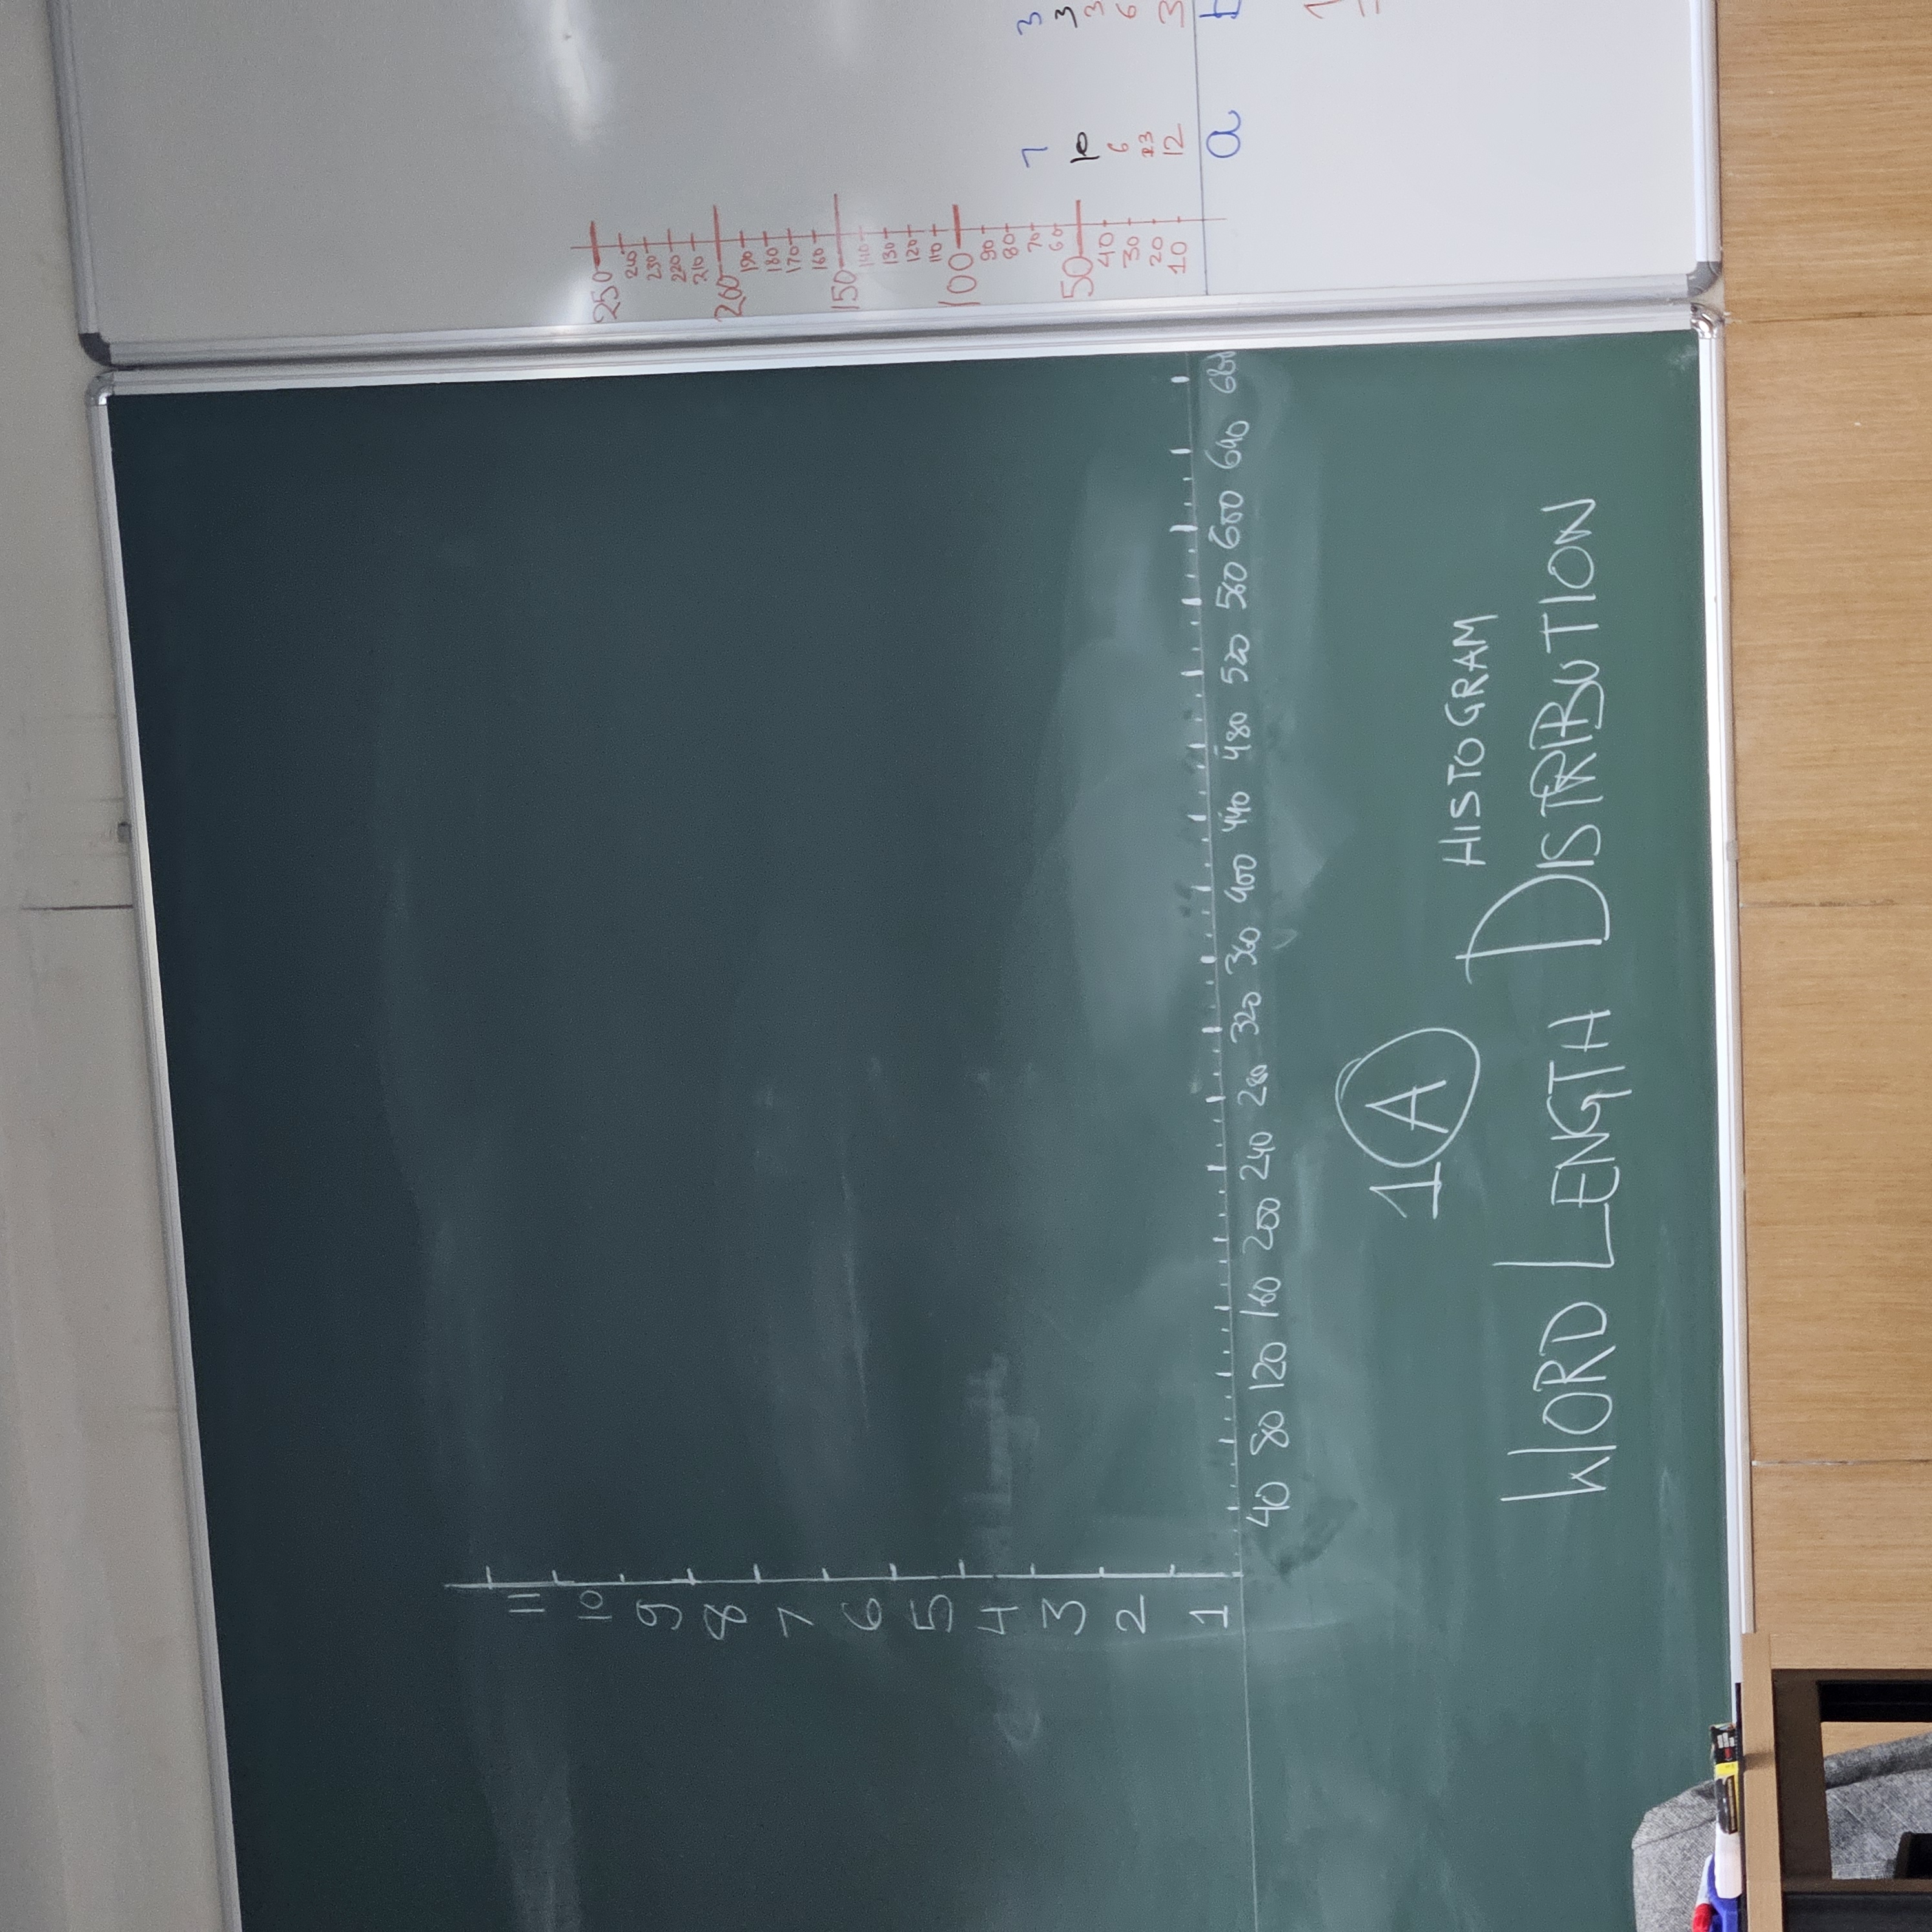 11
10
9
8
7
6
5
4
3
2
1
40 80 120 160 200 240 280 320 360 400 440 480 520 560 600 640 680
1 A
HISTOGRAM
WORD LENGTH DISTRIBUTION
250
240
230
220
210
200
190
180
170
160
150
140
130
120
110
100
90
80
70 7 3
60 3
50 10 3
40
30 6 6
20 13
10 12 3
a